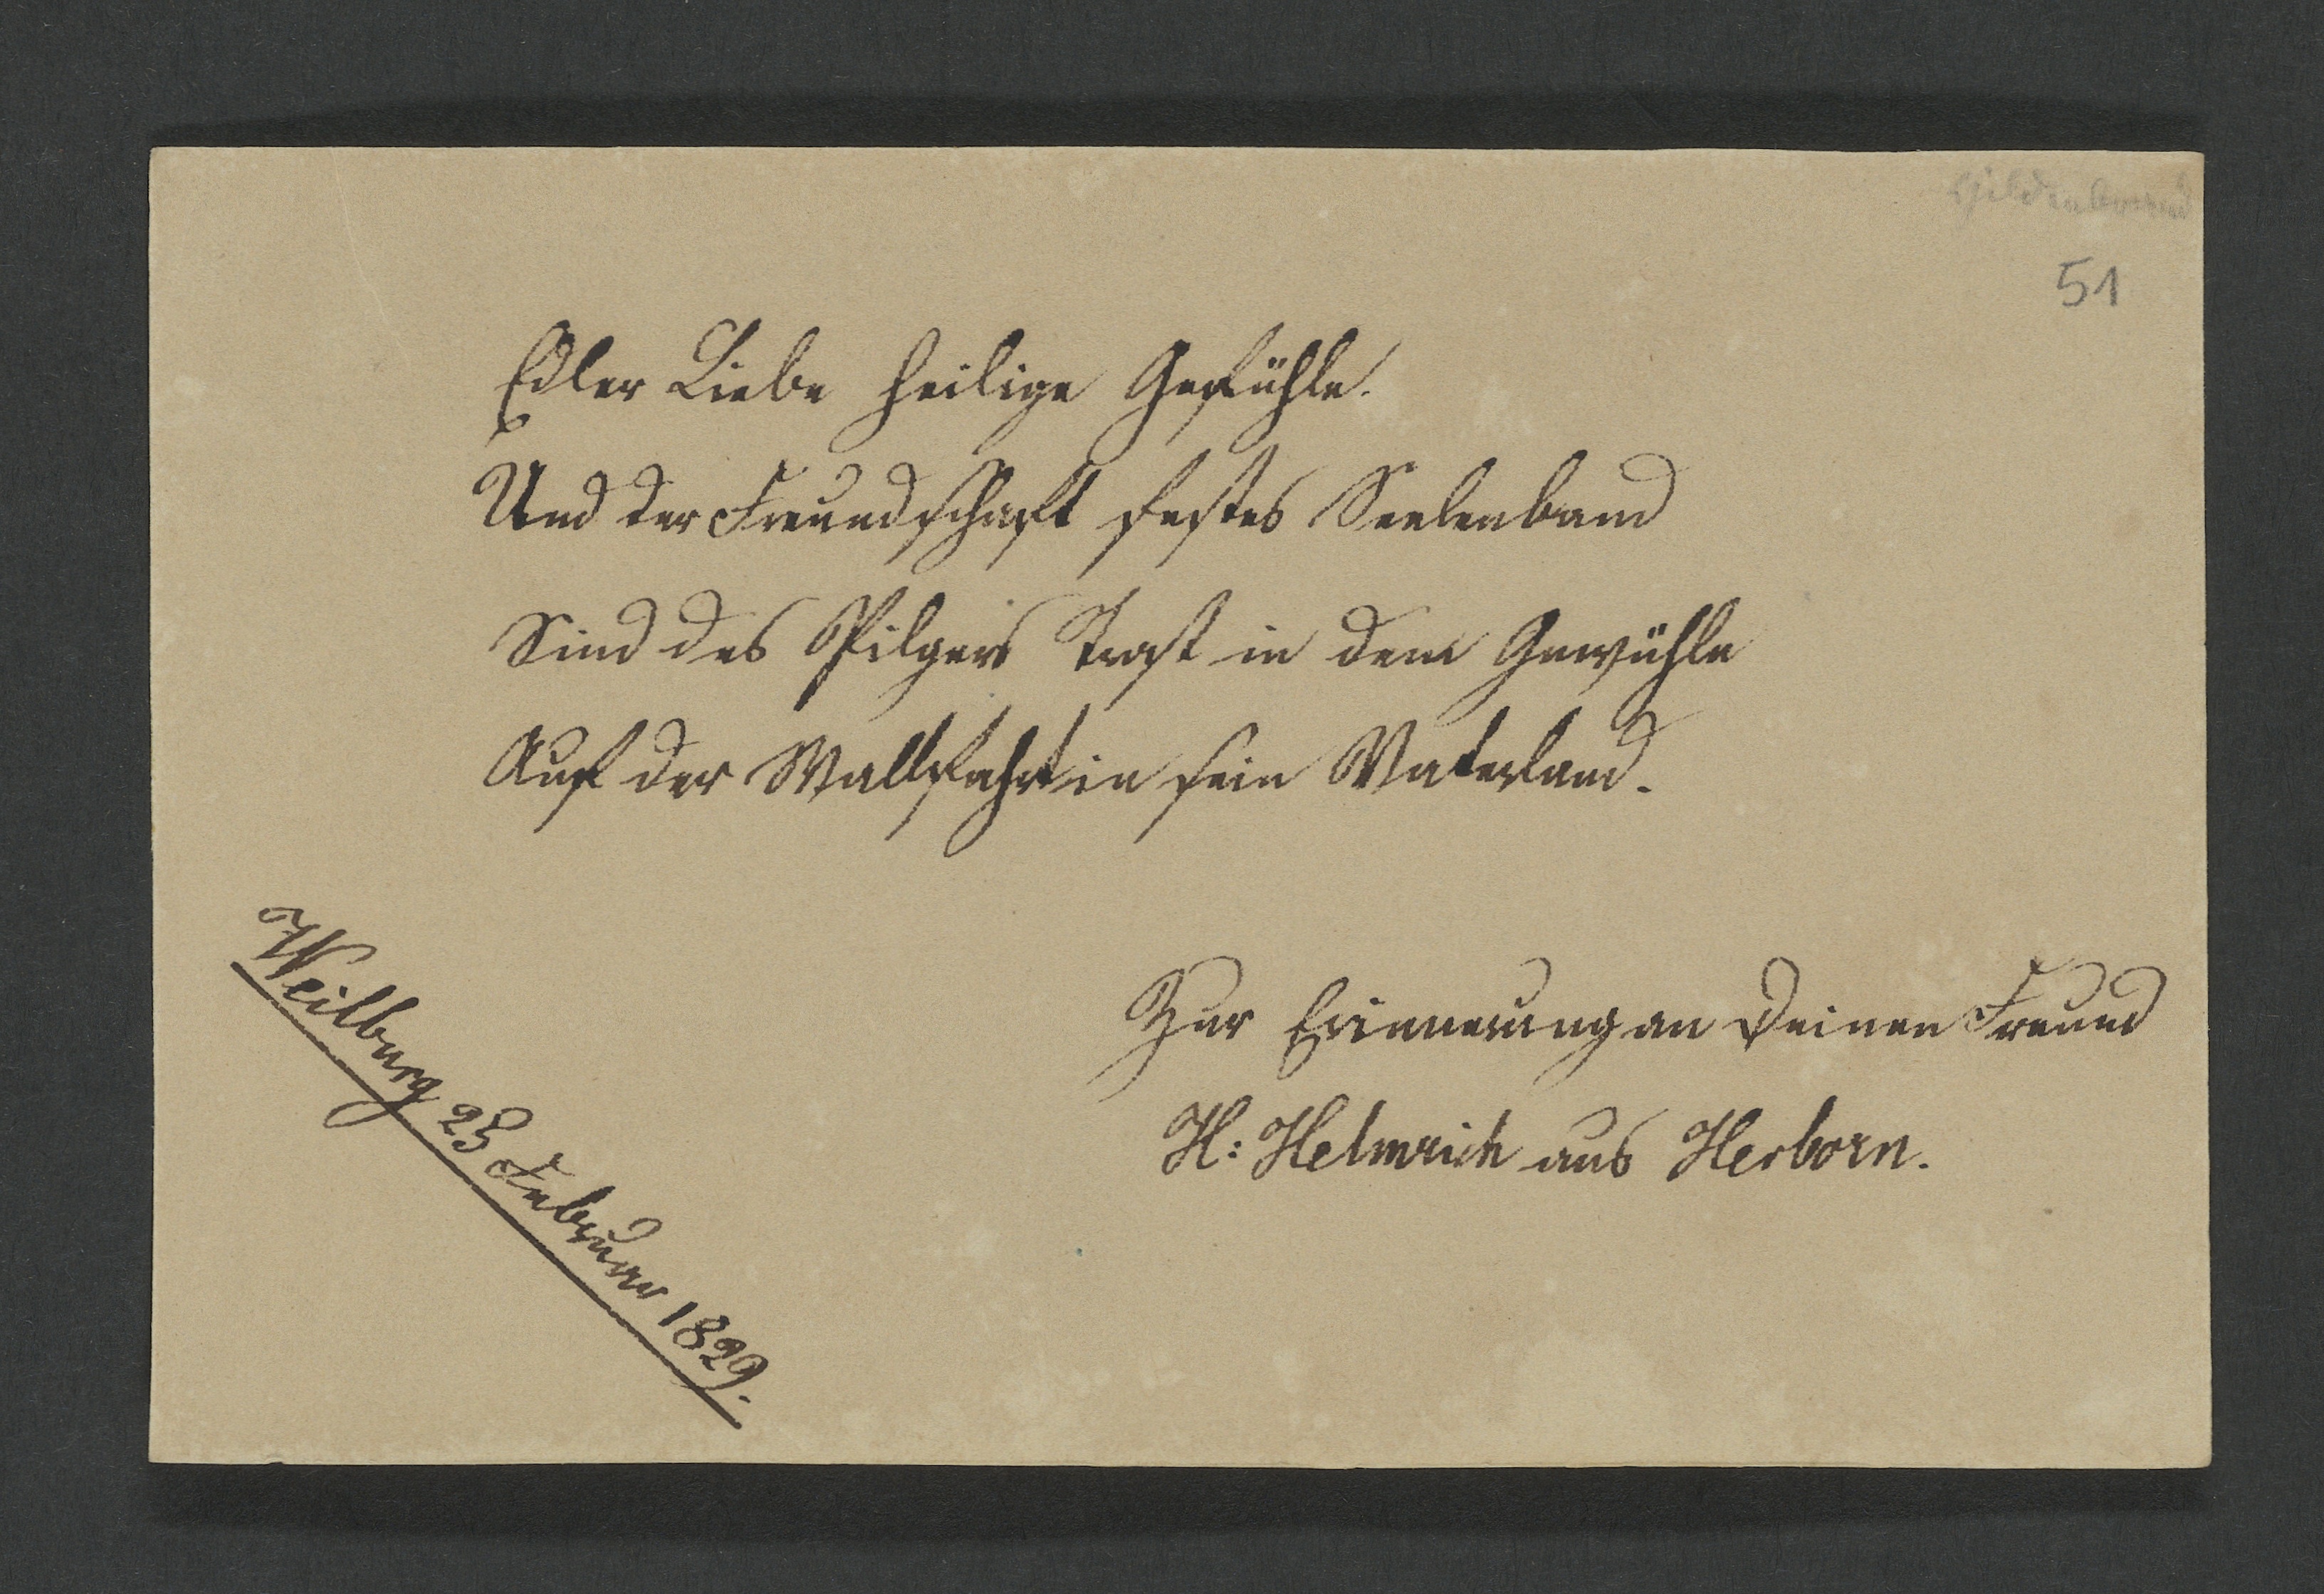 51
Edler Liebe heilige Gefühle.
Und der Freundschaft festes Seelenband
Sind des Pilgers Trost in dem Gewühle
Auf der Wallfahrt in sein Vaterland.
Zur Erinnerung an Deinen Freund
H: Helmrich aus Herborn.
Weilburg 25 Februar 1829.